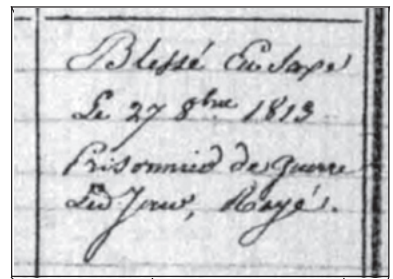 Blessé En Saxe
Le 27 8bre 1813
Prisonnier de Guerre
Led Jour, Rayé.